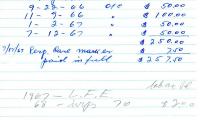 9-28-66 010 $ 50.00
11-9-66 " $ 100.00
1-2-67 " $ 50.00
7-12-67 " $ 50.00
$ 250.00
7/17/67 Perp. Care marker 7.50
paid in full $ 257.50
1967 - L.F.E
68 - wfs 70 $ 200